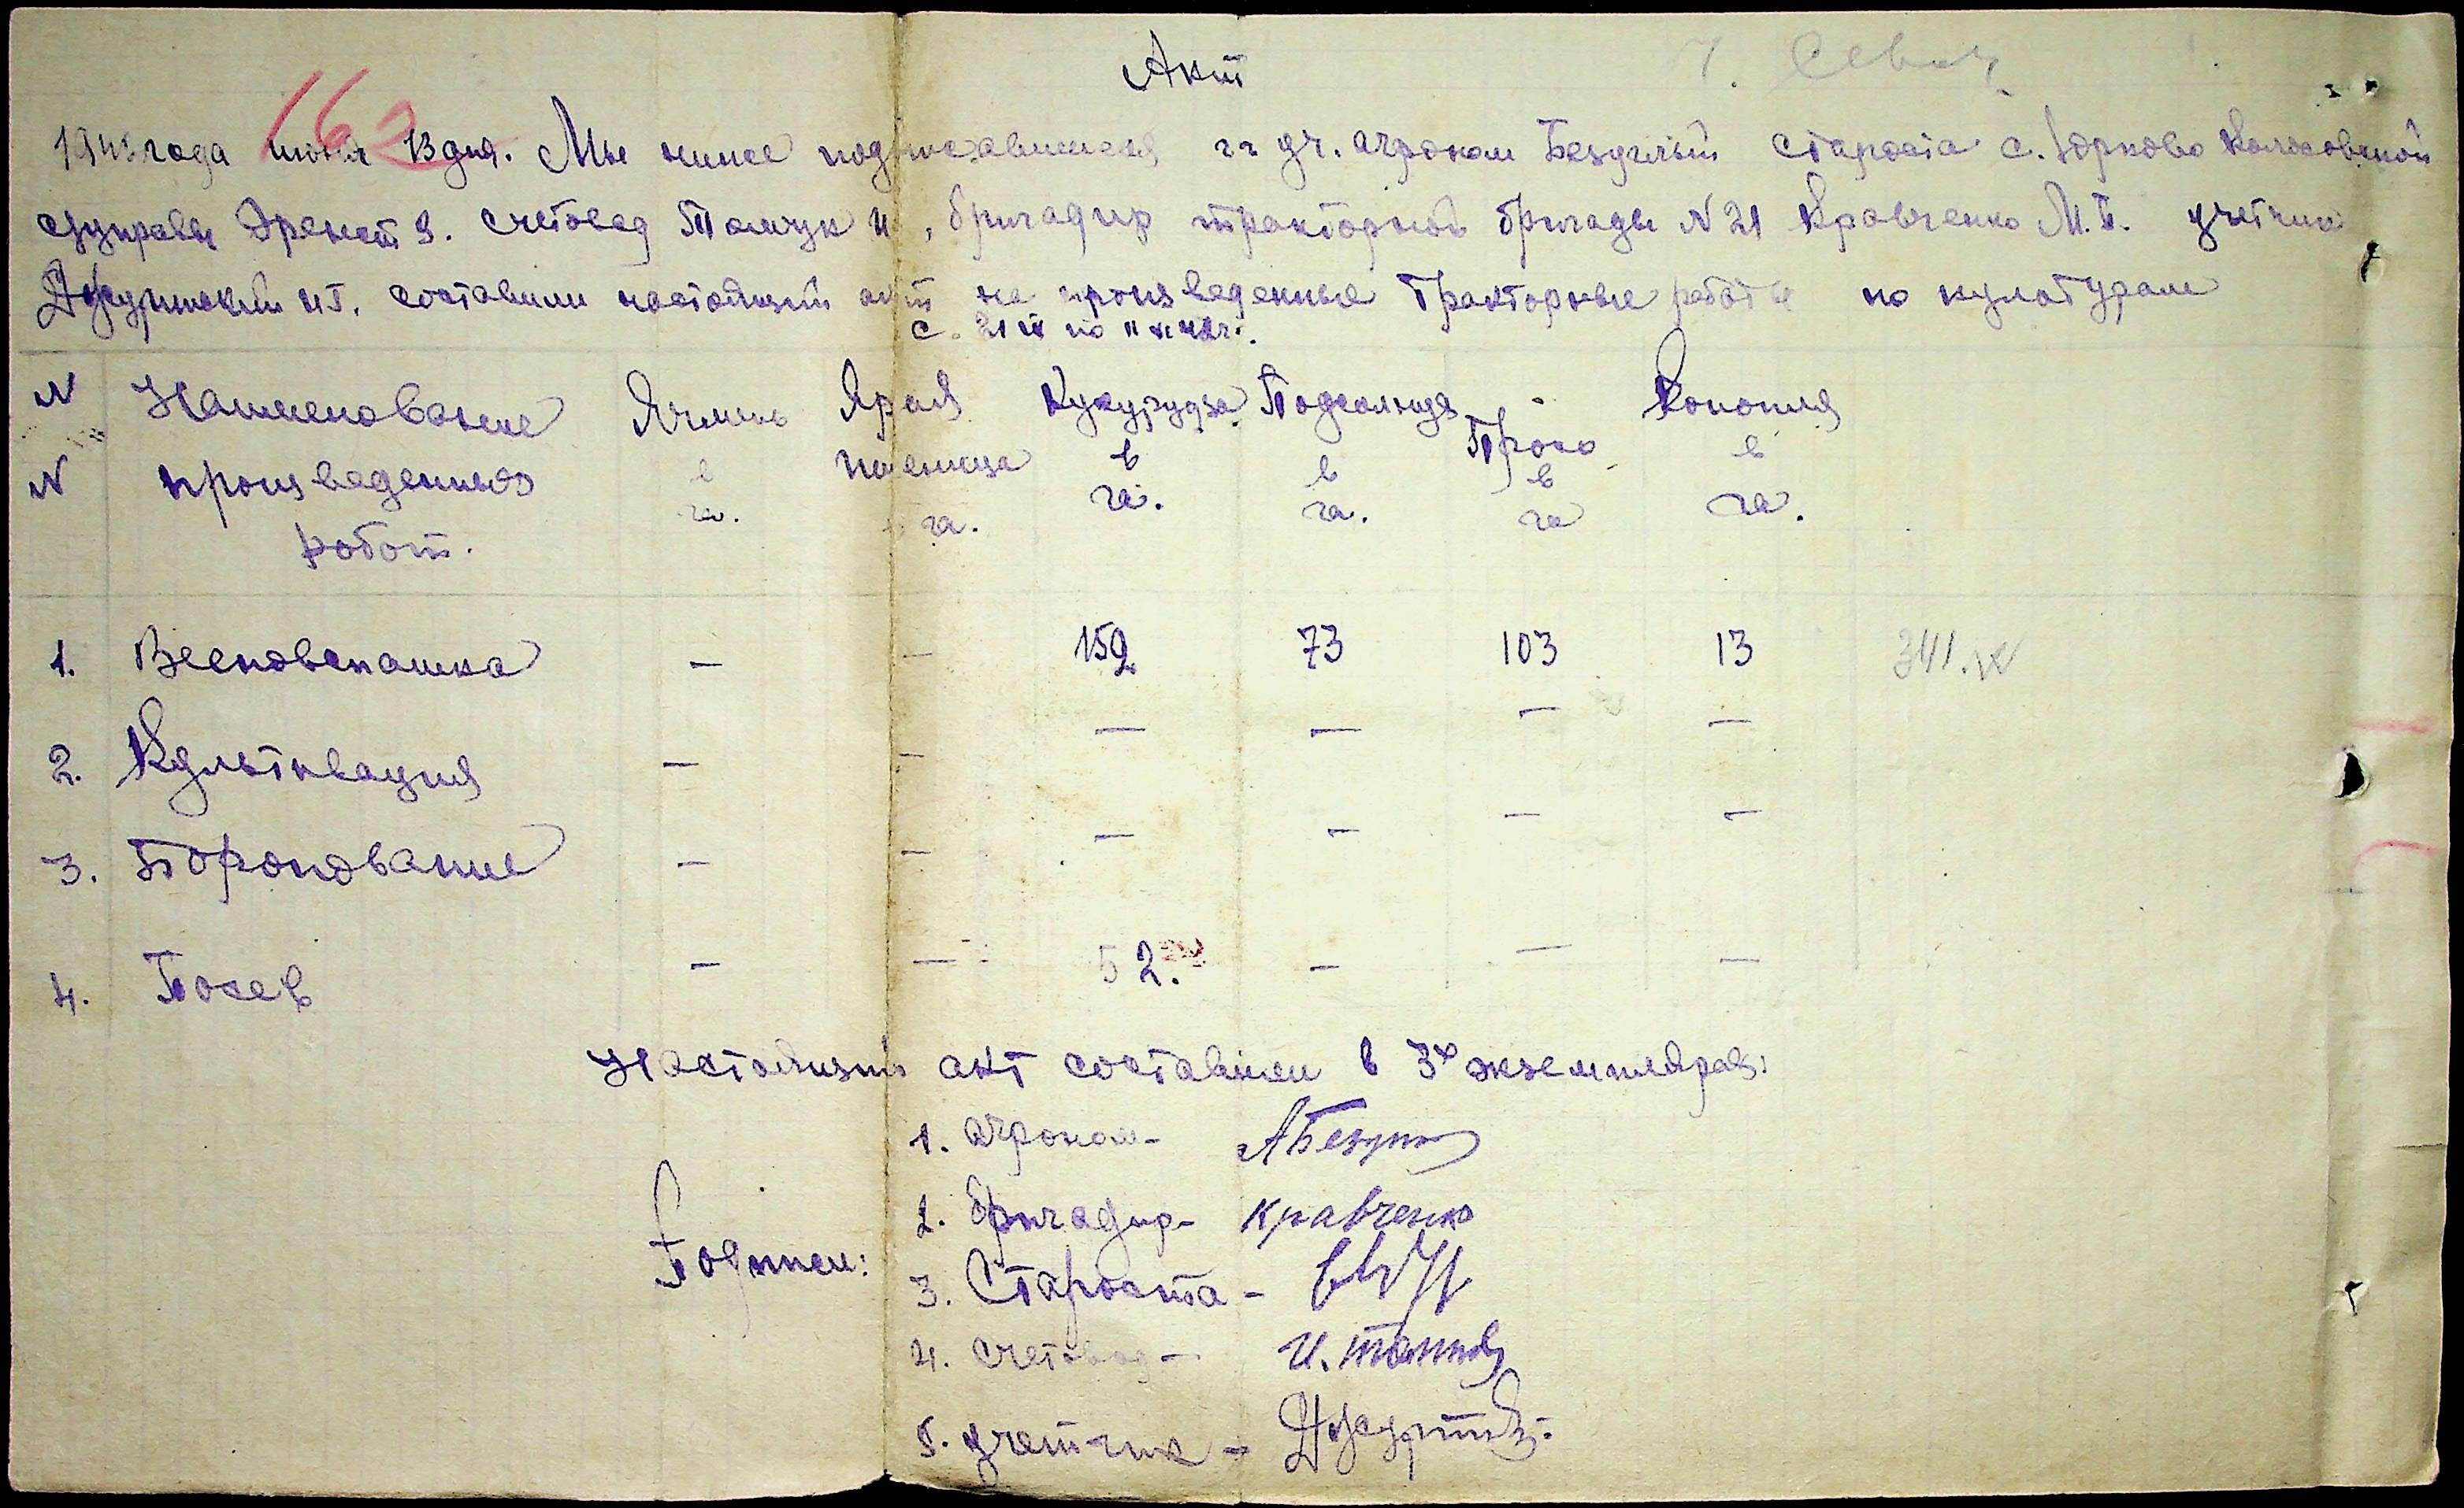 Акт
162
194 года июня 13 дня. Мы ниже подписавшиеся гг уч. агроном Безуглый староста с. Юрково Колосовской
сузправы Эрнст Я. счетовод Томчук И, бригадир тракторной бригады N 21 Кравченко М.П. учетчик
Джуринский И.Г. составили настоящий акт на произведенные тракторные работы по культурам
с 21 по 11
N N Наименование произведенных работ. Ячмень в га. Ярая пшеница га. Кукурудза в га. Подсолнуха в га. Просо в га Конопля в га.
1. Весновспашка — — 152 73 103 13 341. га
2. Культивация — — — — — —
3. Боронование — — — — — —
4. Посев — — 52. — — —
Настоящий акт составлен в 3х экземплярах:
Подписи:
1. агроном - АБезугл
2. бригадир - Кравченко
3. Староста -
4. счетовод - И. Томчук
5. учетчик - Джурин